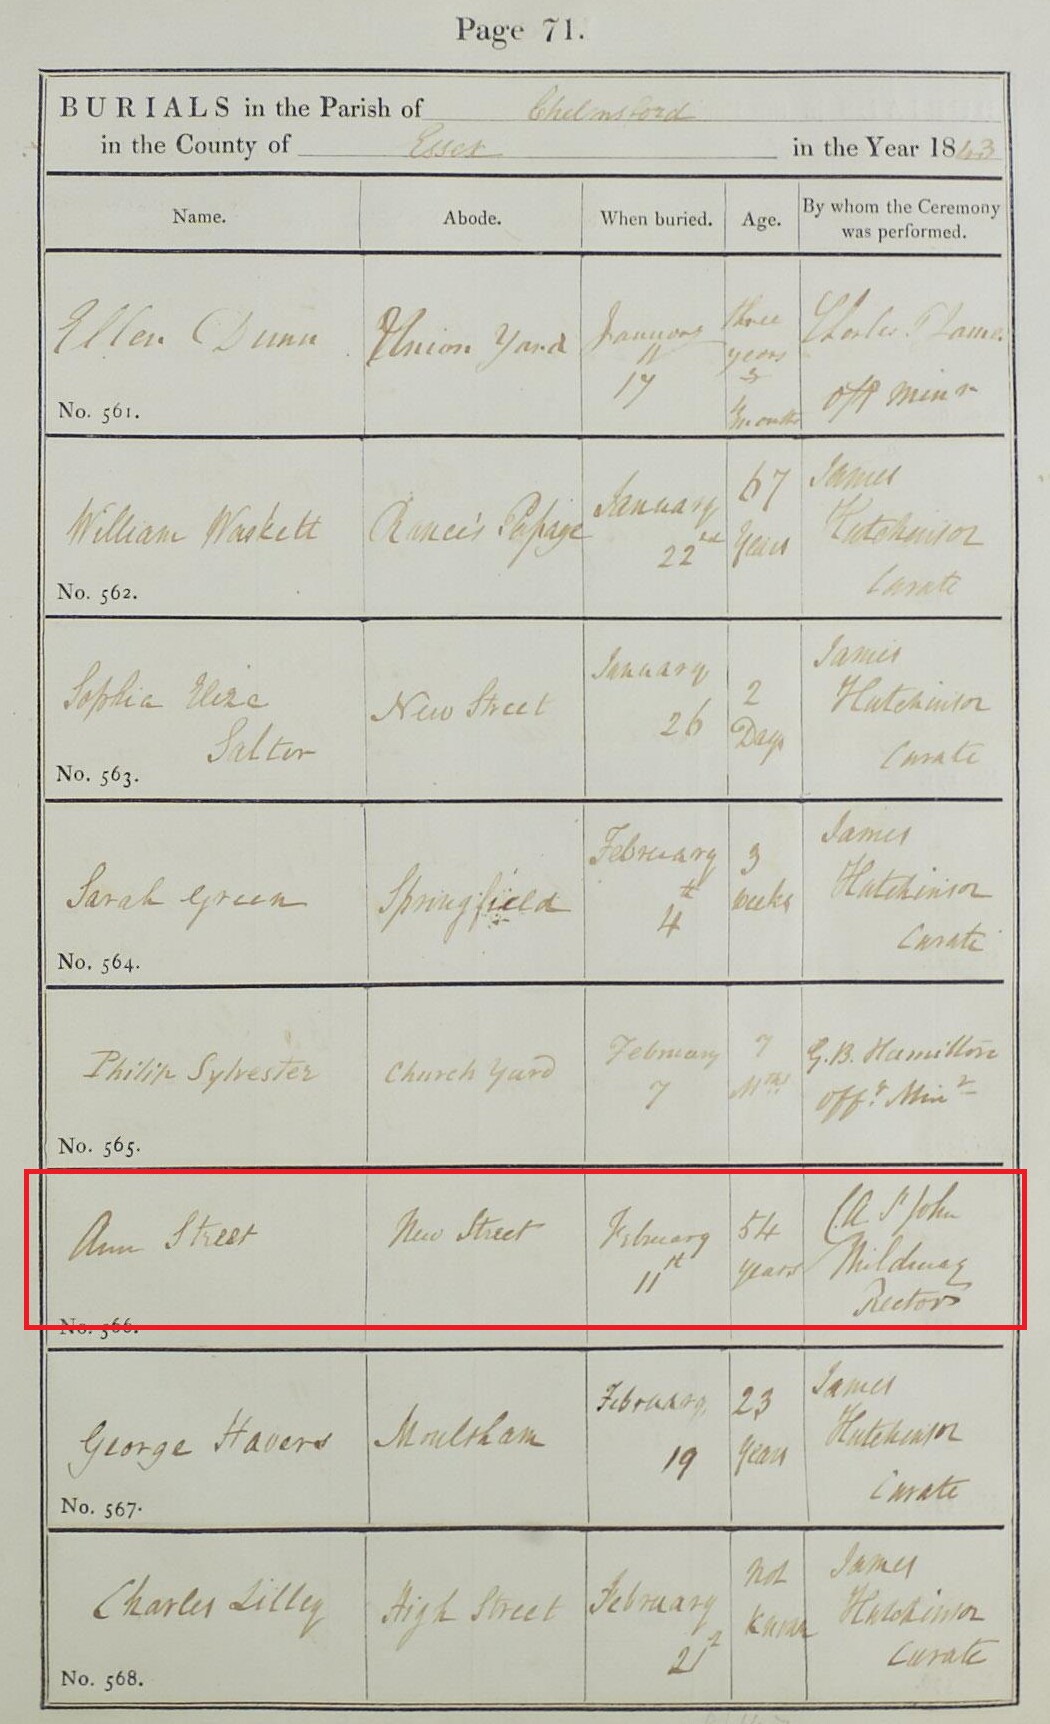 Page 71.
BURIALS in the Parish of Chelmsford
in the County of Essex in the Year 1843
Name. Abode. When buried. Age. By whom the Ceremony was performed.
Ellen Dunn
Union Yard
January
17
three
years
3
months
Charles
Off Minr
No. 561.
William Waskett
Rance's Passage
January
22nd
67
Years
James
Hutchinson
Curate
No. 562.
Sophia Eliza
Salter
New Street
January
26
2
Days
James
Hutchinson
Curate
No. 563.
Sarah Green
Springfield
February
4th
3
weeks
James
Hutchinson
Curate
No. 564.
Philip Sylvester
Church Yard
February
7
7
Mths
G.B. Hamilton
Offg Minr
No. 565.
Ann Street
New Street
February
11th
54
years
CA St John
Mildmay
Rector
No. 566.
George Havers
Moulsham
February
19
23
Years
James
Hutchinson
Curate
No. 567.
Charles Lilley
High Street
February
21st
Not
known
James
Hutchinson
Curate
No. 568.